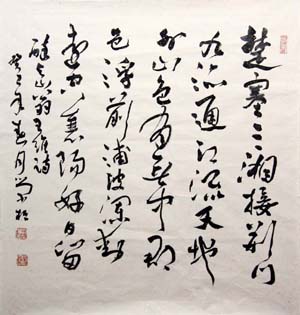 楚塞三湘接荆门
九派通江流天地
外山色有無中郡
邑浮前浦波澜動
遠空襄陽好日留
醉与山翁王維诗
年春月